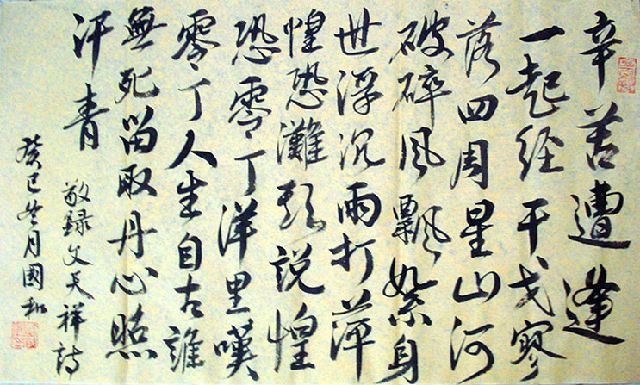 辛苦遭逢
一起经干戈寥
落四周星山河
破碎风飘絮身
世浮沉雨打萍
惶恐灘头説惶
恐零丁洋里嘆
零丁人生自古誰
無死留取丹心照
汗青
敬録文天祥詩
癸巳 月國和